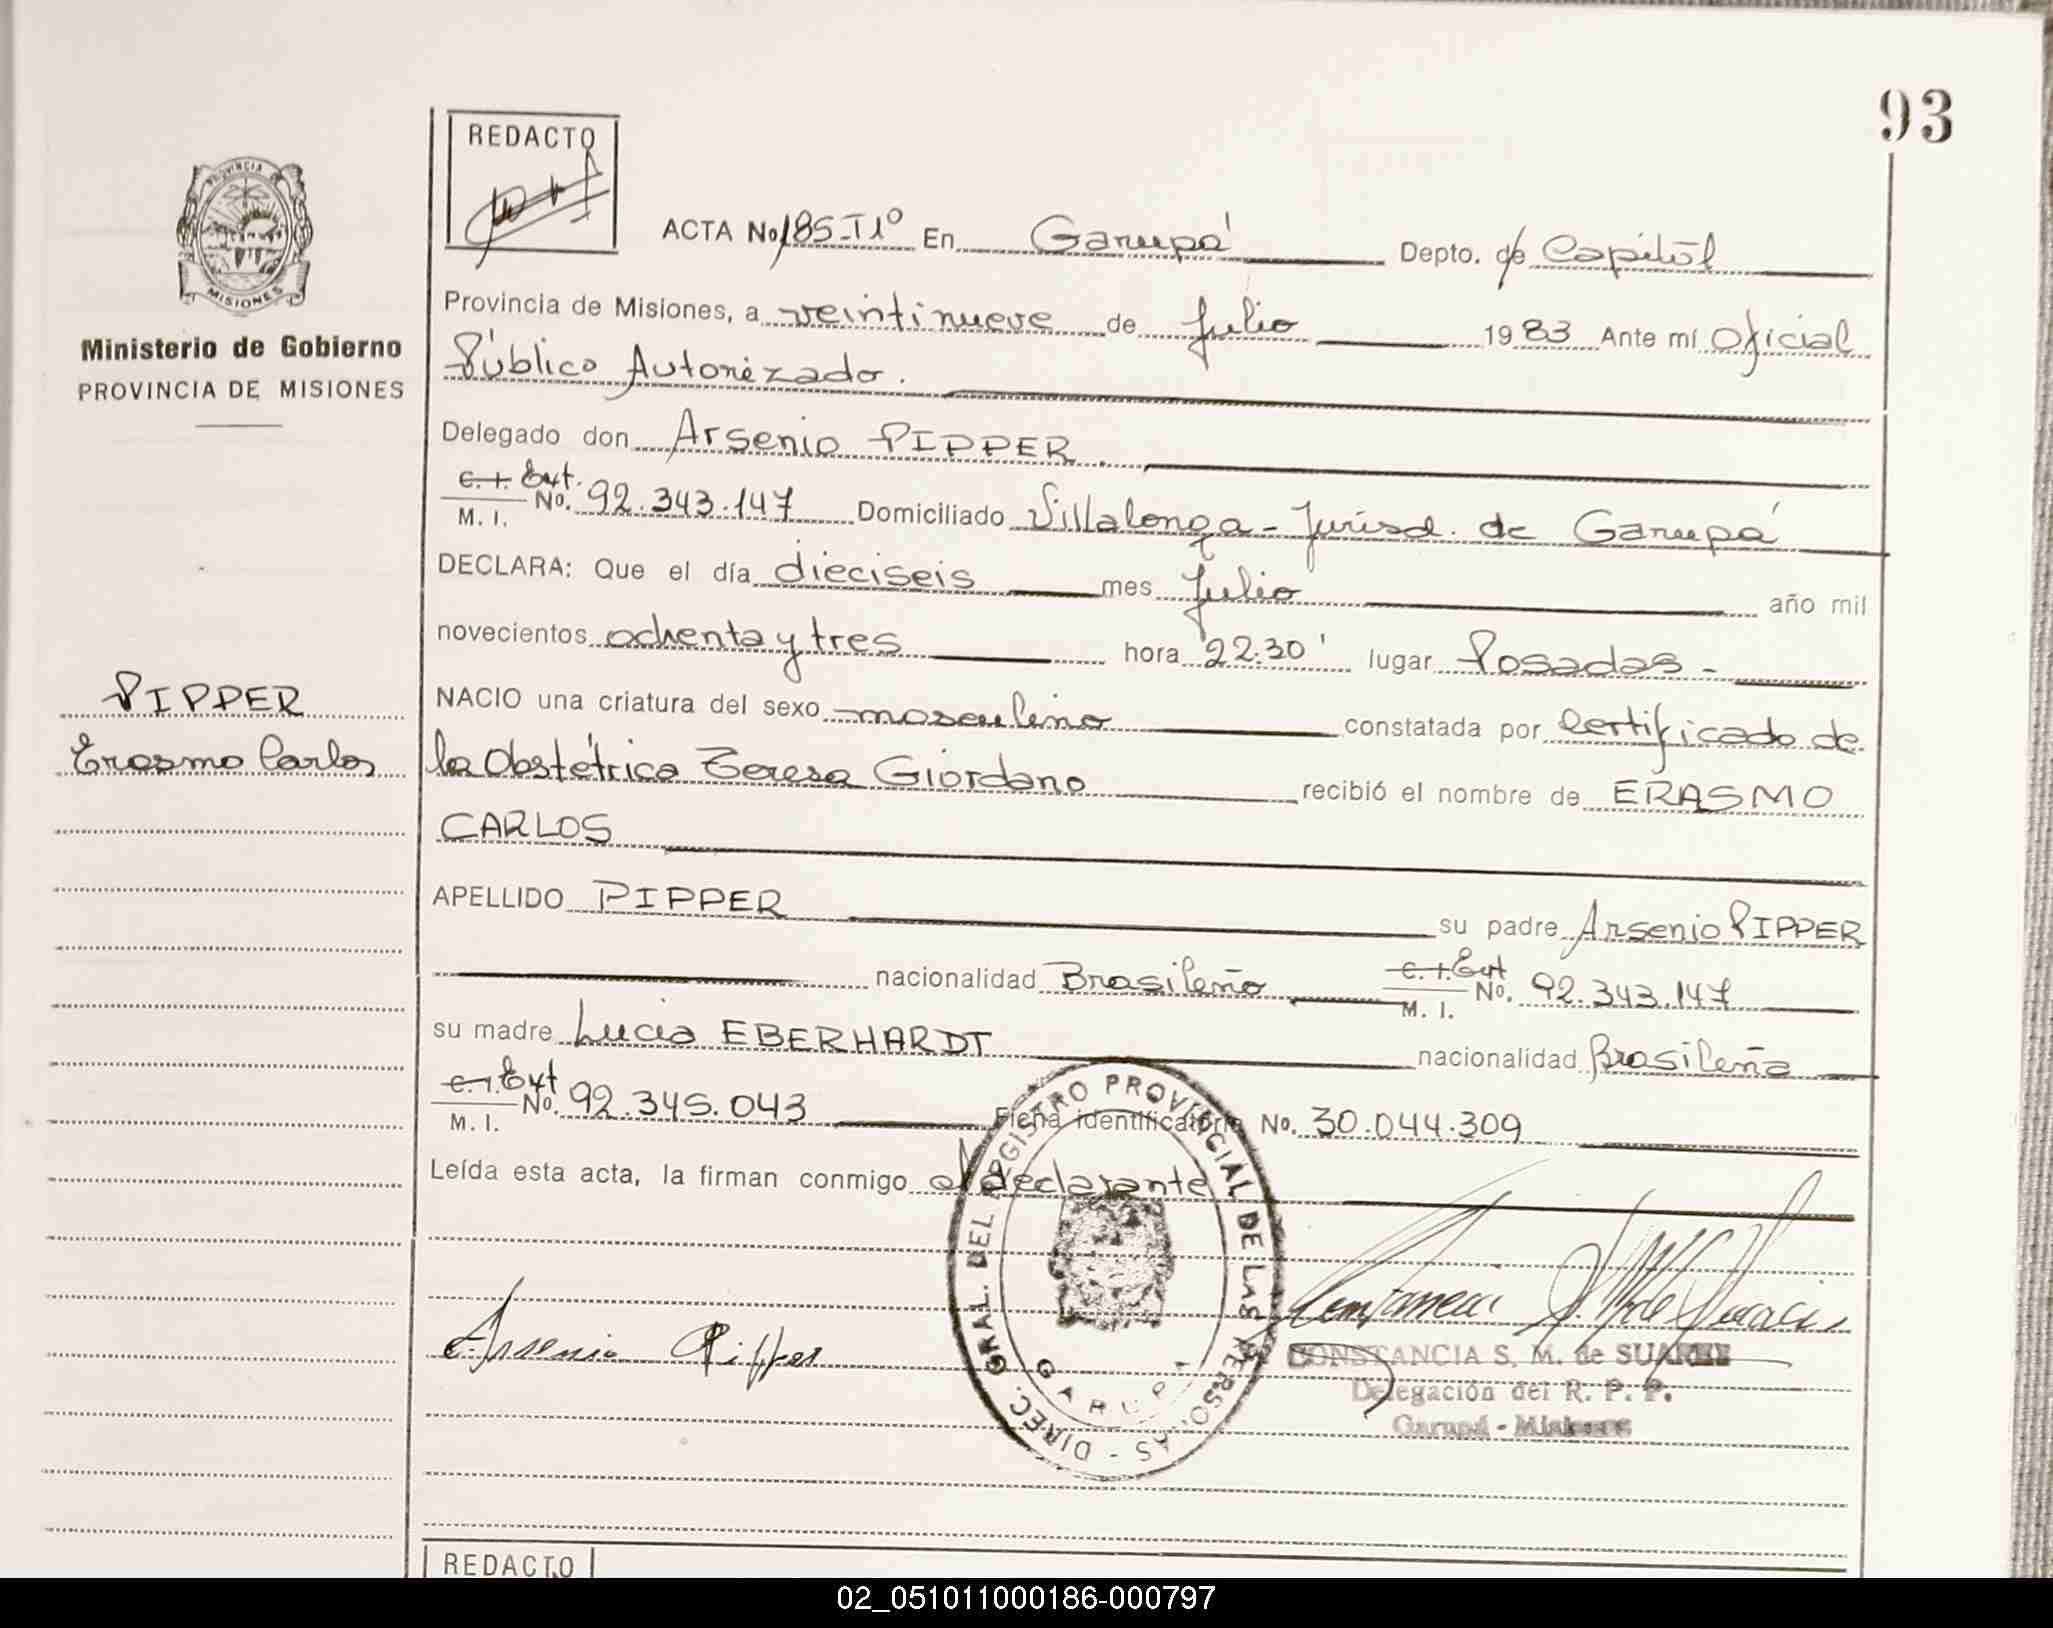 93
REDACTO
PROVINCIA DE
MISIONES
Ministerio de Gobierno
PROVINCIA DE MISIONES
ACTA No 185-T1º En Garupá Depto. de Capital
Provincia de Misiones, a veintinueve de Julio 1983 Ante mí Oficial
Público Autorizado.
Delegado don Arsenio PIPPER
C. I. Ext.
M. I. No. 92.343.147 Domiciliado Villalonga - Jurisd. de Garupá
DECLARA: Que el día dieciseis mes Julio año mil
novecientos ochenta y tres hora 22.30' lugar Posadas -
PIPPER
Erasmo Carlos
NACIO una criatura del sexo masculino constatada por Certificado de
la Obstétrica Teresa Giordano recibió el nombre de ERASMO
CARLOS
APELLIDO PIPPER su padre Arsenio PIPPER
nacionalidad Brasileño C. I. Ext M. I. No. 92.343.147
su madre Lucia EBERHARDT nacionalidad Brasileña
C. I. Ext M. I. No. 92.345.043 Ficha identificatoria No. 30.044.309
Leída esta acta, la firman conmigo el declarante
DIREC. GRAL. DEL REGISTRO PROVINCIAL DE LAS PERSONAS -
GARUPA
Arsenio Pipper
CONSTANCIA S. M. de SUAREZ
Delegación del R. P. P.
Garupá - Misiones
REDACTO
02_051011000186-000797